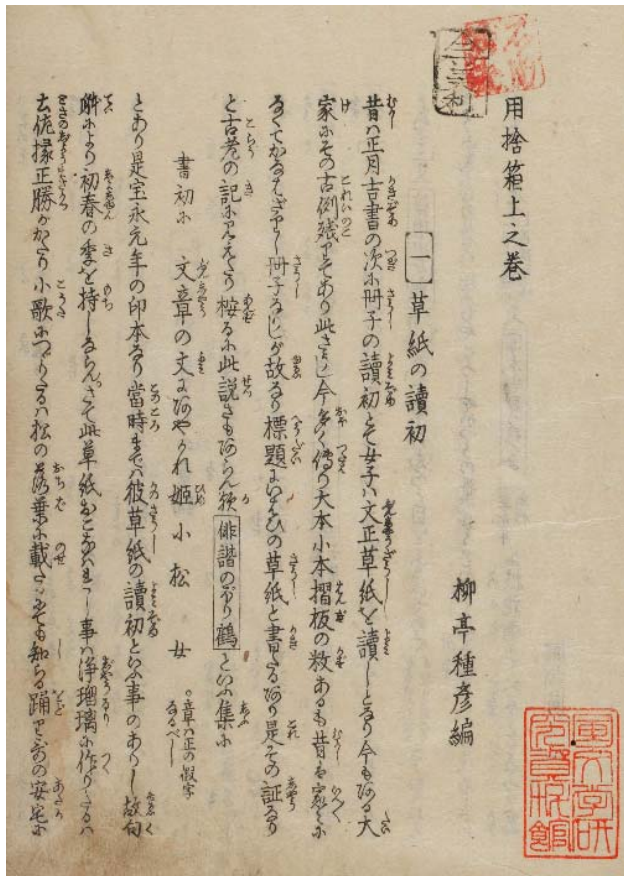 用捨箱上之巻
柳亭種彦編
一 草紙の讀初
昔ハ正月吉書の次に冊子の讀初とて女子ハ文正草紙を讀しとなり今もある大
家にその古例残りてあり此さうし今多く傳り大本小本摺板の数あるも昔ハ家々に
なくてかなはざりし冊子なりしが故なり標題にいはひの草紙と書たるあり是その証なり
と古老の記に見えたり按るに此説さもあらん歟 俳諧のぼり鶴 といふ集に
書初に 文章の丈にあやかれ姫小松 女 章ハ正の假字なるべし
とあり是宝永元年の印本なり當時までハ彼草紙の讀初といふ事のありし故句
よより初春の季を持しならんさて此草紙おこなはれし事ハ浄瑠璃に作りたるハ
土佐掾正勝がかたり小歌につゞりたるハ松の落葉に載たる